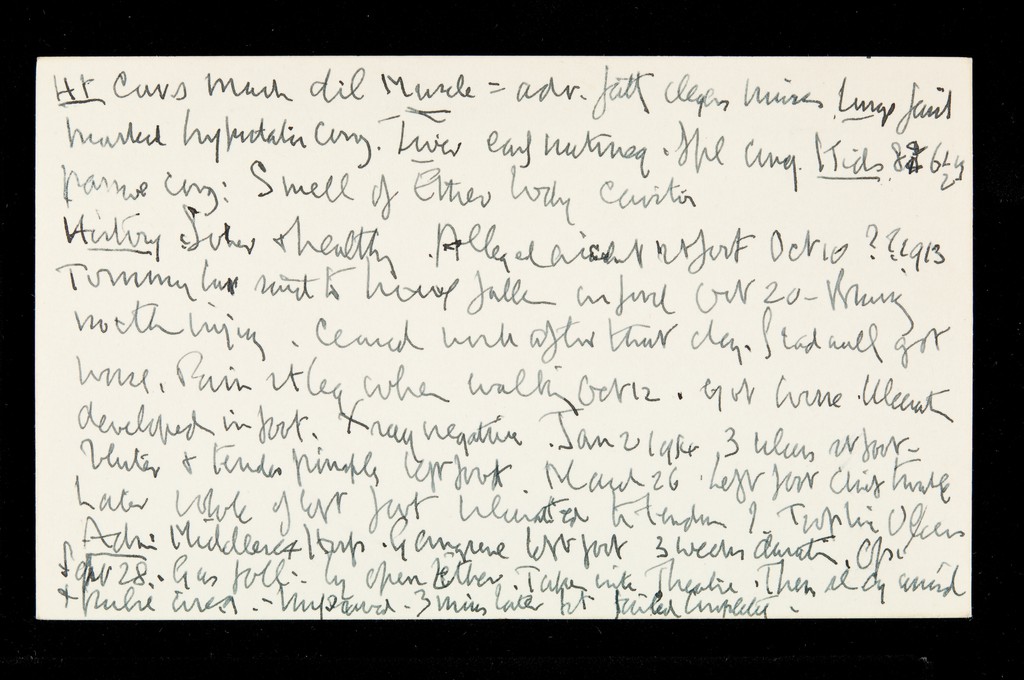 Ht Cavs much dil Muscle = adv. fatt degen Lungs
marked hypostatic cong. Liver early nutmeg. Spl cong. Kids 8 6½
passive cong: Smell of Ether body cavities
History Sober & healthy. Alleged accident rt foot Oct 10 ??1913
Tommy bar said to have fallen on foot Oct 20 -
no other injury. Ceased work after that day. got
worse. Pain rt leg when walking Oct 12. got worse. Ulceration
developed in foot. Xray negative. Jan 2 1914 3 ulcers rt foot -
& tender left foot. March 26 Left foot
Later whole of left foot ulcerated to tendon ? Trophic Ulcers
Adm Middlesex Hosp. Gangrene left foot 3 weeks duration. Op.
Sept 28. Gas foll. by open Ether. Taken into Theatre. Then
& pulse ceased. - Improved - 3 mins later pt failed completely -